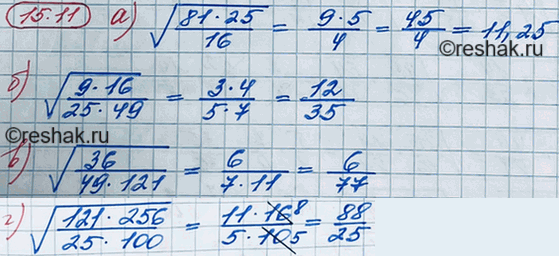 15.11 а) √(81·25/16) = 9·5/4 = 45/4 = 11,25
б) √(9·16/25·49) = 3·4/5·7 = 12/35
©reshak.ru
©reshak.ru
в) √(36/49·121) = 6/7·11 = 6/77
г) √(121·256/25·100) = 11·16 8/5·10 5 = 88/25